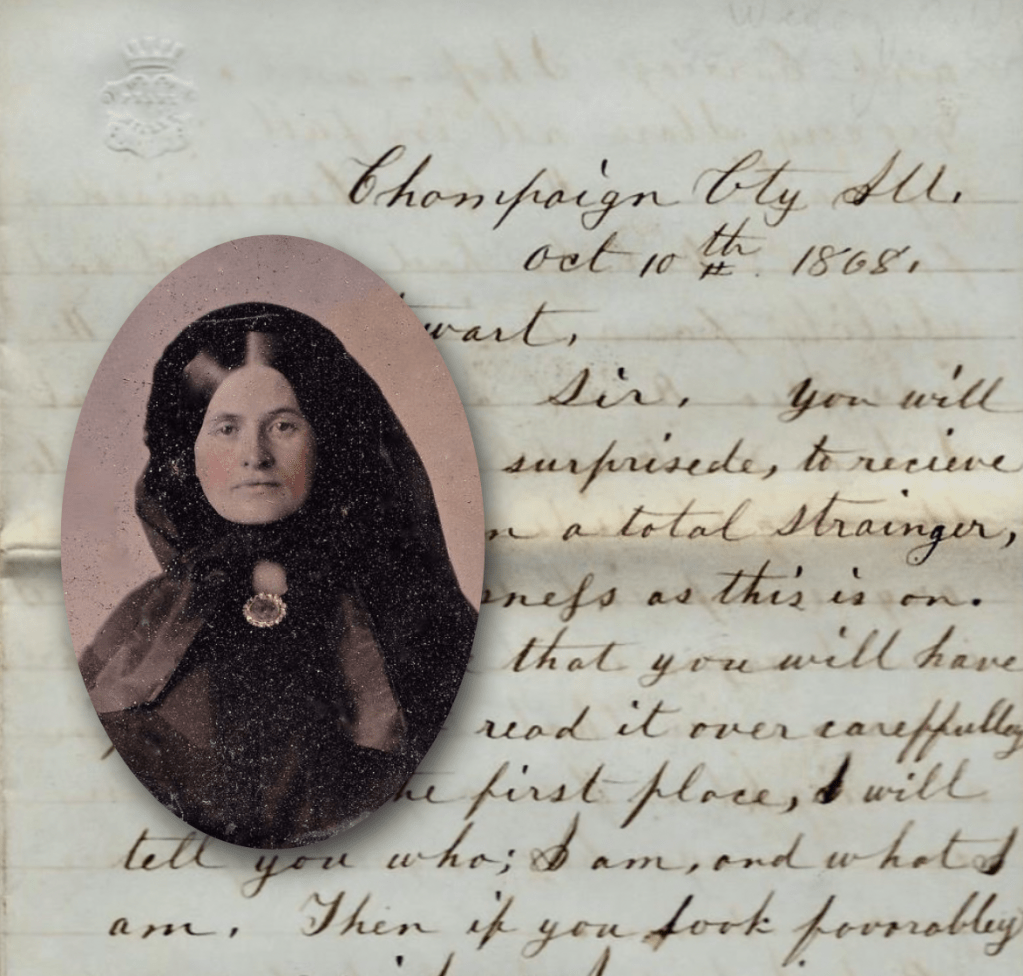 Champaign Cty Ill.
Oct 10th 1868.
wart,
Sir. You will
surprisede, to recieve
n a total strainger,
ness as this is on.
that you will have
read it over careffulley
he first place, I will
tell you who; I am, and what I
am. Then if you look favorabley